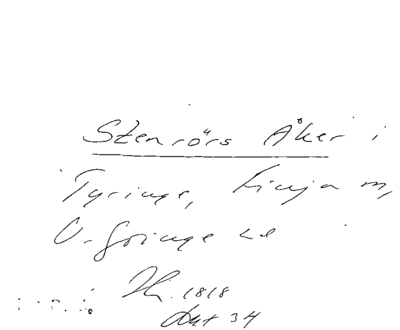 Stenrörs Åker i
Tyringe, Finja m,
V. Göinge
1818
34